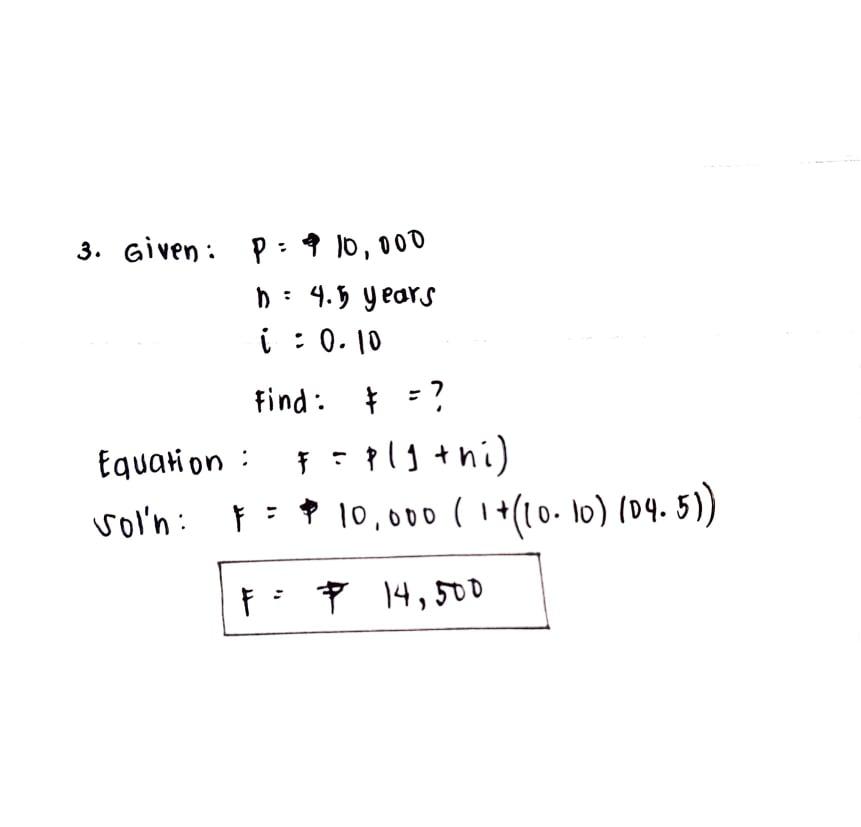 3. Given: P = ₱ 10,000
n = 4.5 years
i = 0.10
Find: F = ?
Equation: F = P(1 + ni)
Sol'n: F = ₱ 10,000 ( 1 + ((0.10) (04.5))
F = ₱ 14,500